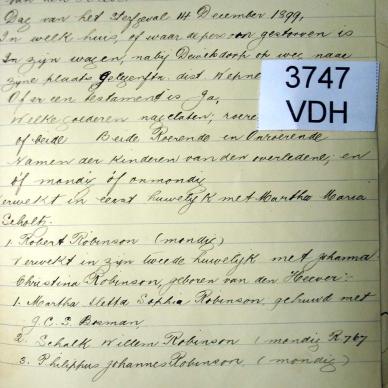 Dag van het Sterfgeval 14 December 1899,
In welk huis, of waar de persoon gestorven is
In zijn wagen, nabij op weg naar
zyne plaats dist Wepener
Of er een testament is Ja,
Welke goederen nagelaten, roerende
of beide Beide Roerende en Onroerende
Namen der Kinderen van den overledene; en
of mondig of onmondig
verwekt in eerst huwelyk met Martha Maria
Scholtz.
1. Robert Robinson (mondig)
Verwekt in zyn tweede huwelijk met Johanna
Christina Robinson, geboren van den Heever:-
1. Martha Sophia Robinson, gehuwd met
J. C. S. Bosman
2. Schalk Willem Robinson (mondig R 767
3. Philippus Johannes Robinson, (mondig)
3747
VDH